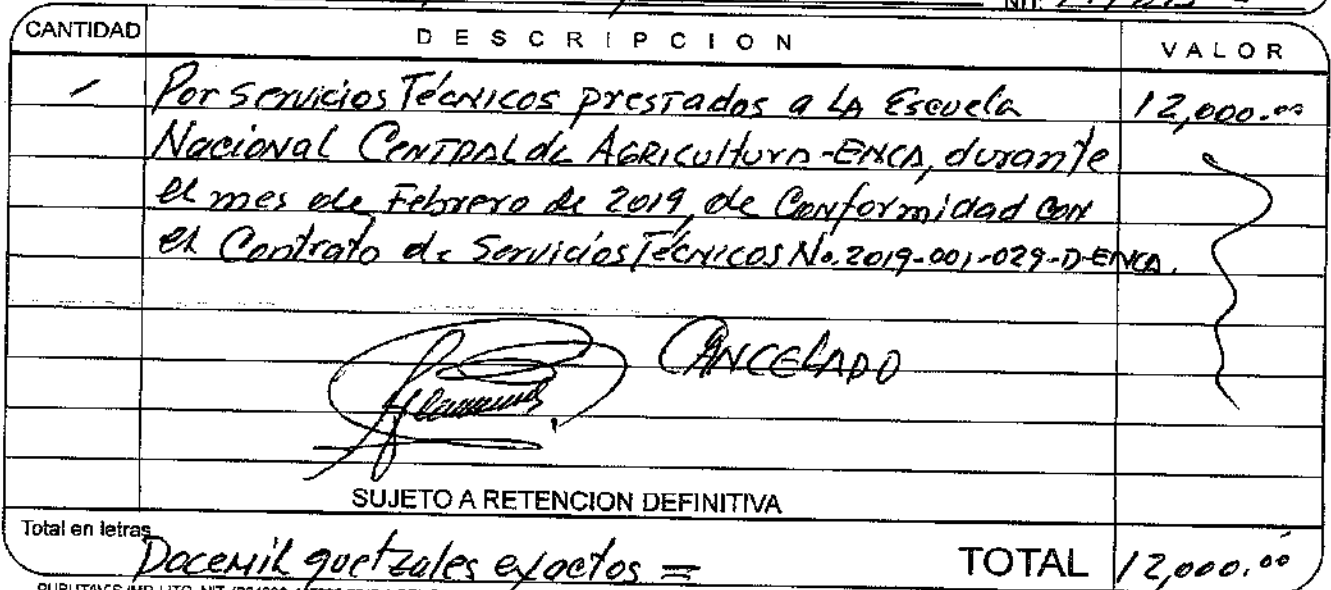 NIT:
CANTIDAD DESCRIPCION VALOR
Por servicios Técnicos prestados a LA Escuela 12,000.00
Nacional CENTRAL de AGRICultura-ENCA, durante
el mes de Febrero de 2019, de Conformidad con
el Contrato de Servicios Técnicos No. 2019-001-029-D-ENCA.
CANCELADO
SUJETO A RETENCION DEFINITIVA
Total en letras
Docemil quetzales exactos = TOTAL 12,000.00